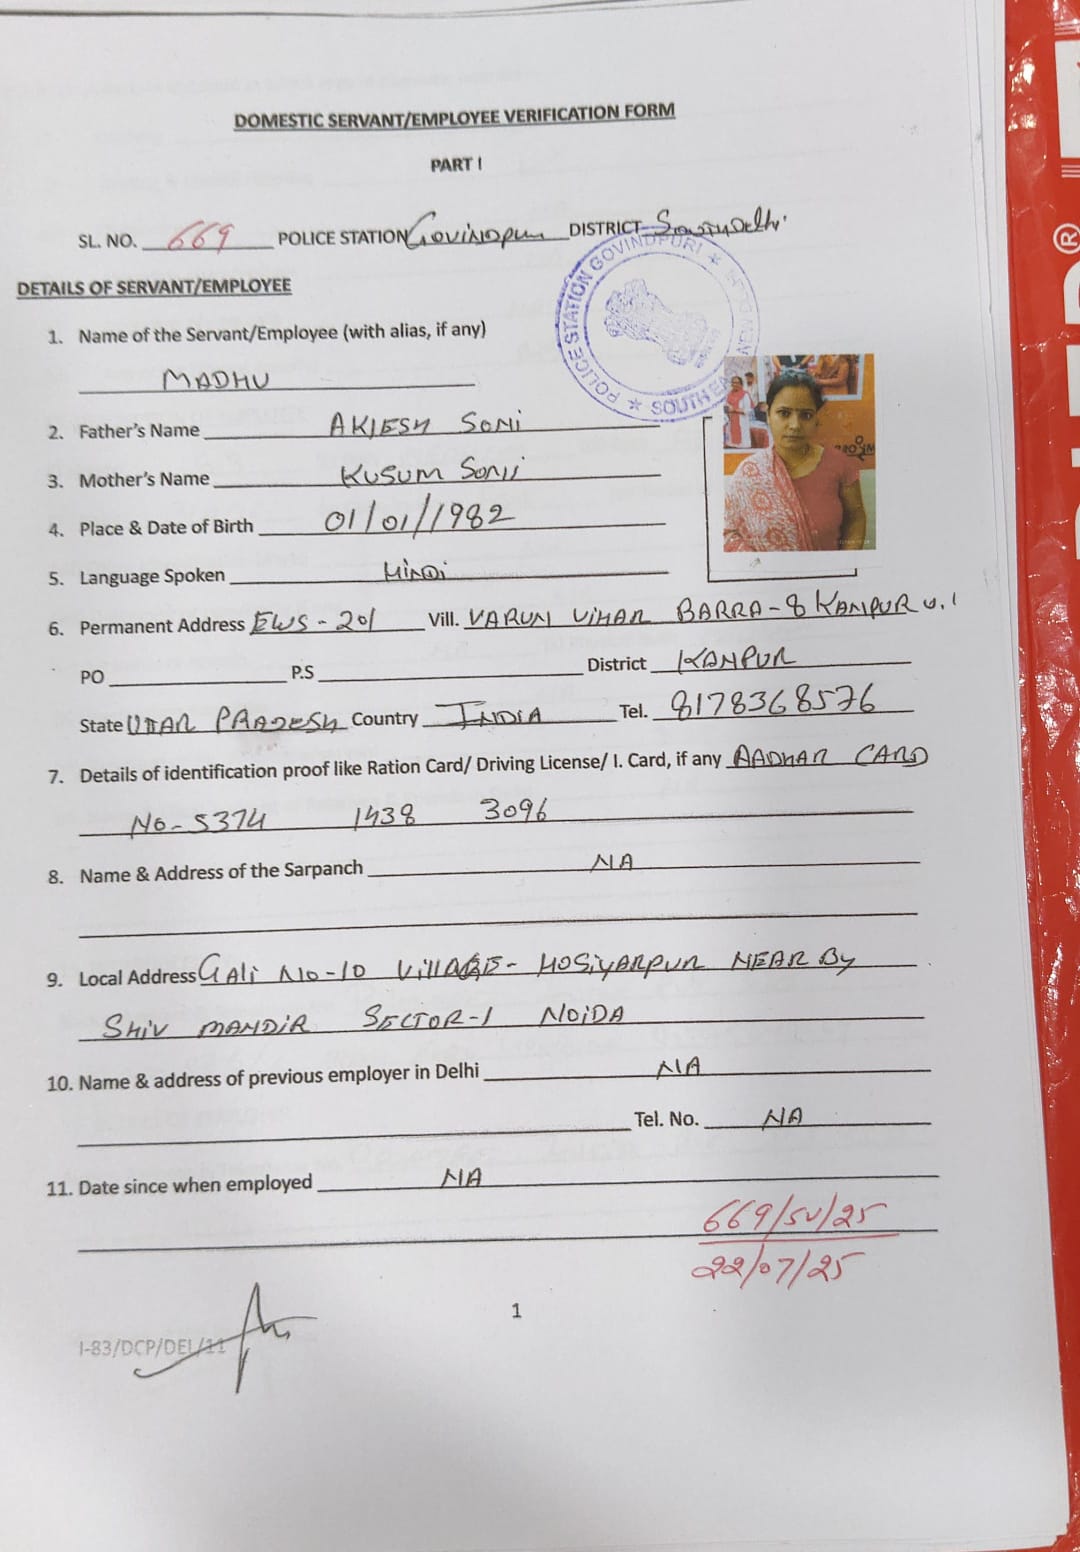 DOMESTIC SERVANT/EMPLOYEE VERIFICATION FORM
PART I
SL. NO. 669 POLICE STATION DISTRICT
POLICE STATION GOVINDPURI
DETAILS OF SERVANT/EMPLOYEE
1. Name of the Servant/Employee (with alias, if any)
MADHU
2. Father's Name AKLESH SONI
3. Mother's Name KUSUM SONI
4. Place & Date of Birth 01/01/1982
5. Language Spoken HINDI
6. Permanent Address EWS - 201 Vill. VARUN VIHAR BARRA - 8 KANPUR
PO P.S District KANPUR
State UTAR PRADESH Country INDIA Tel. 8178368576
7. Details of identification proof like Ration Card/ Driving License/ I. Card, if any AADHAR CARD
No - 5374 1438 3096
8. Name & Address of the Sarpanch NA
9. Local Address GALI NO-10 VILLAGE - HOSIYARPUR NEAR By
SHIV MANDIR SECTOR-1 NOIDA
10. Name & address of previous employer in Delhi NA
Tel. No. NA
11. Date since when employed NA
669/SV/25
22/07/25
1
I-83/DCP/DEL/11